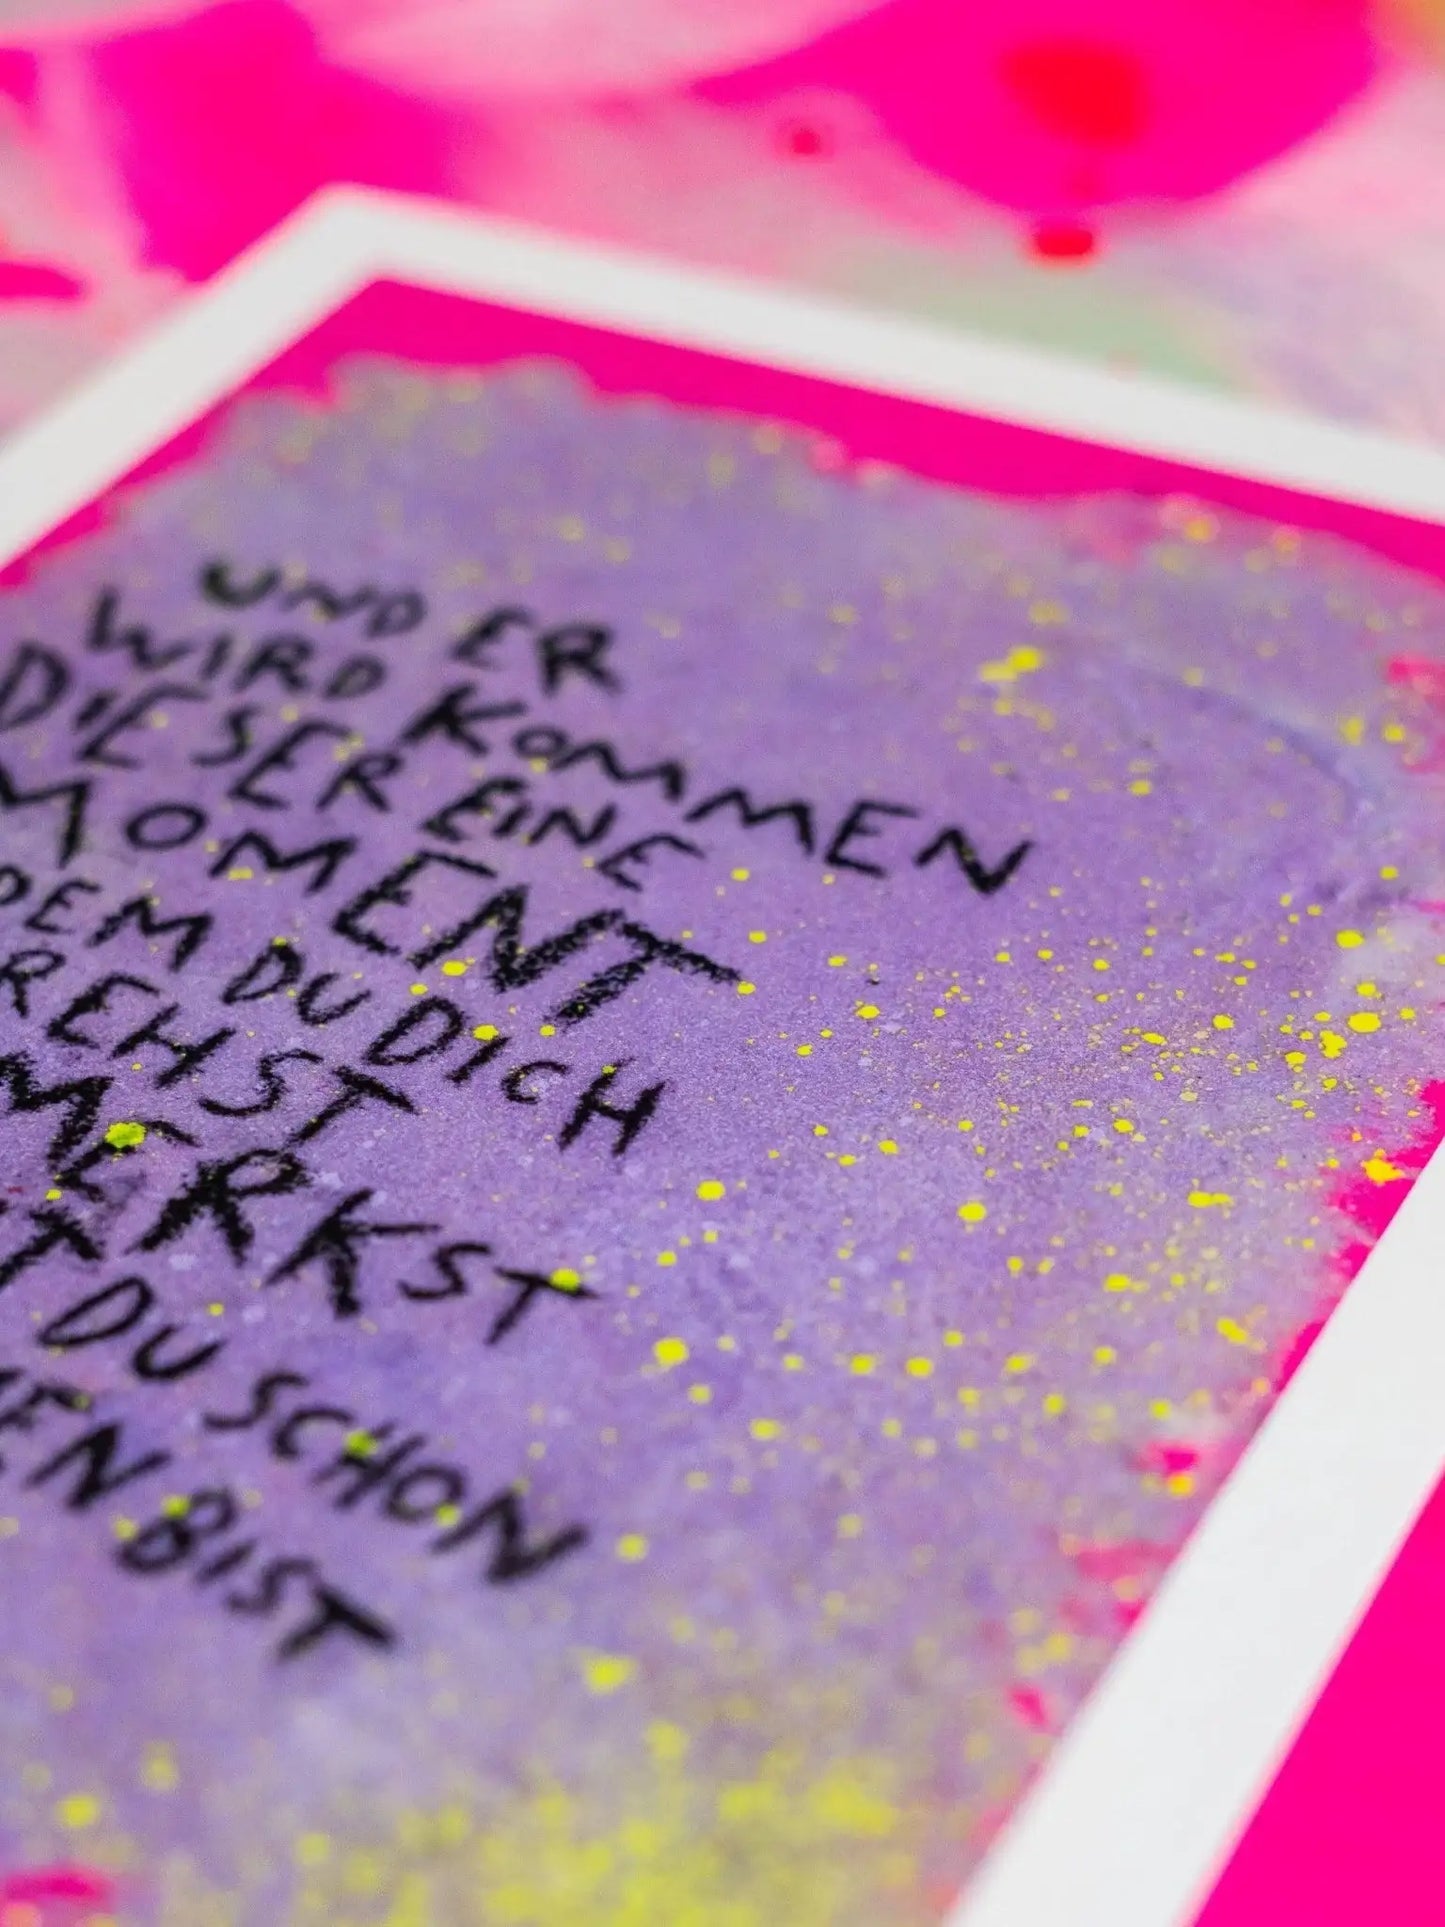 UND ER
WIRD KOMMEN
DIESER EINE
MOMENT
DEM DU DICH
REHST
MERKST
T DU SCHON
EN BIST